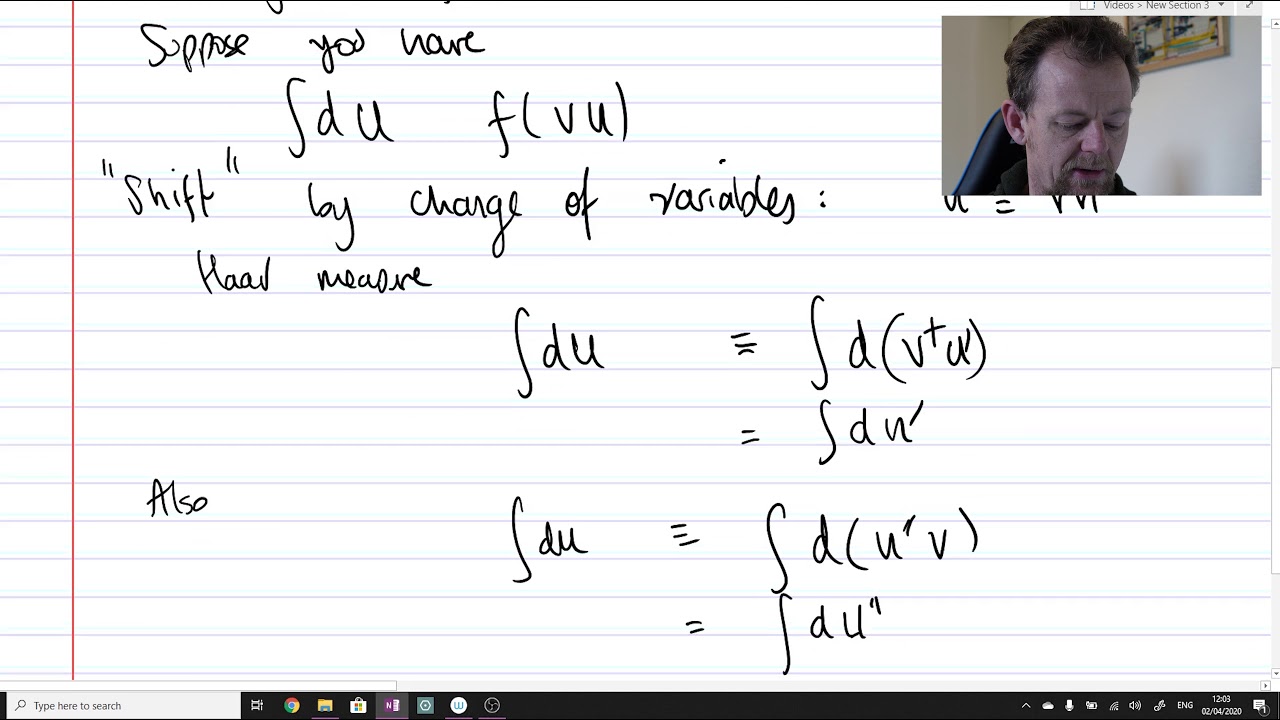 Videos > New Section 3
Suppose you have
∫du f(vu)
"Shift" by change of variables: u' = vu
Haar measure
∫du ≡ ∫d(v†u')
= ∫du'
Also
∫du ≡ ∫d(u''v)
= ∫du''
Type here to search
ENG
12:03
02/04/2020